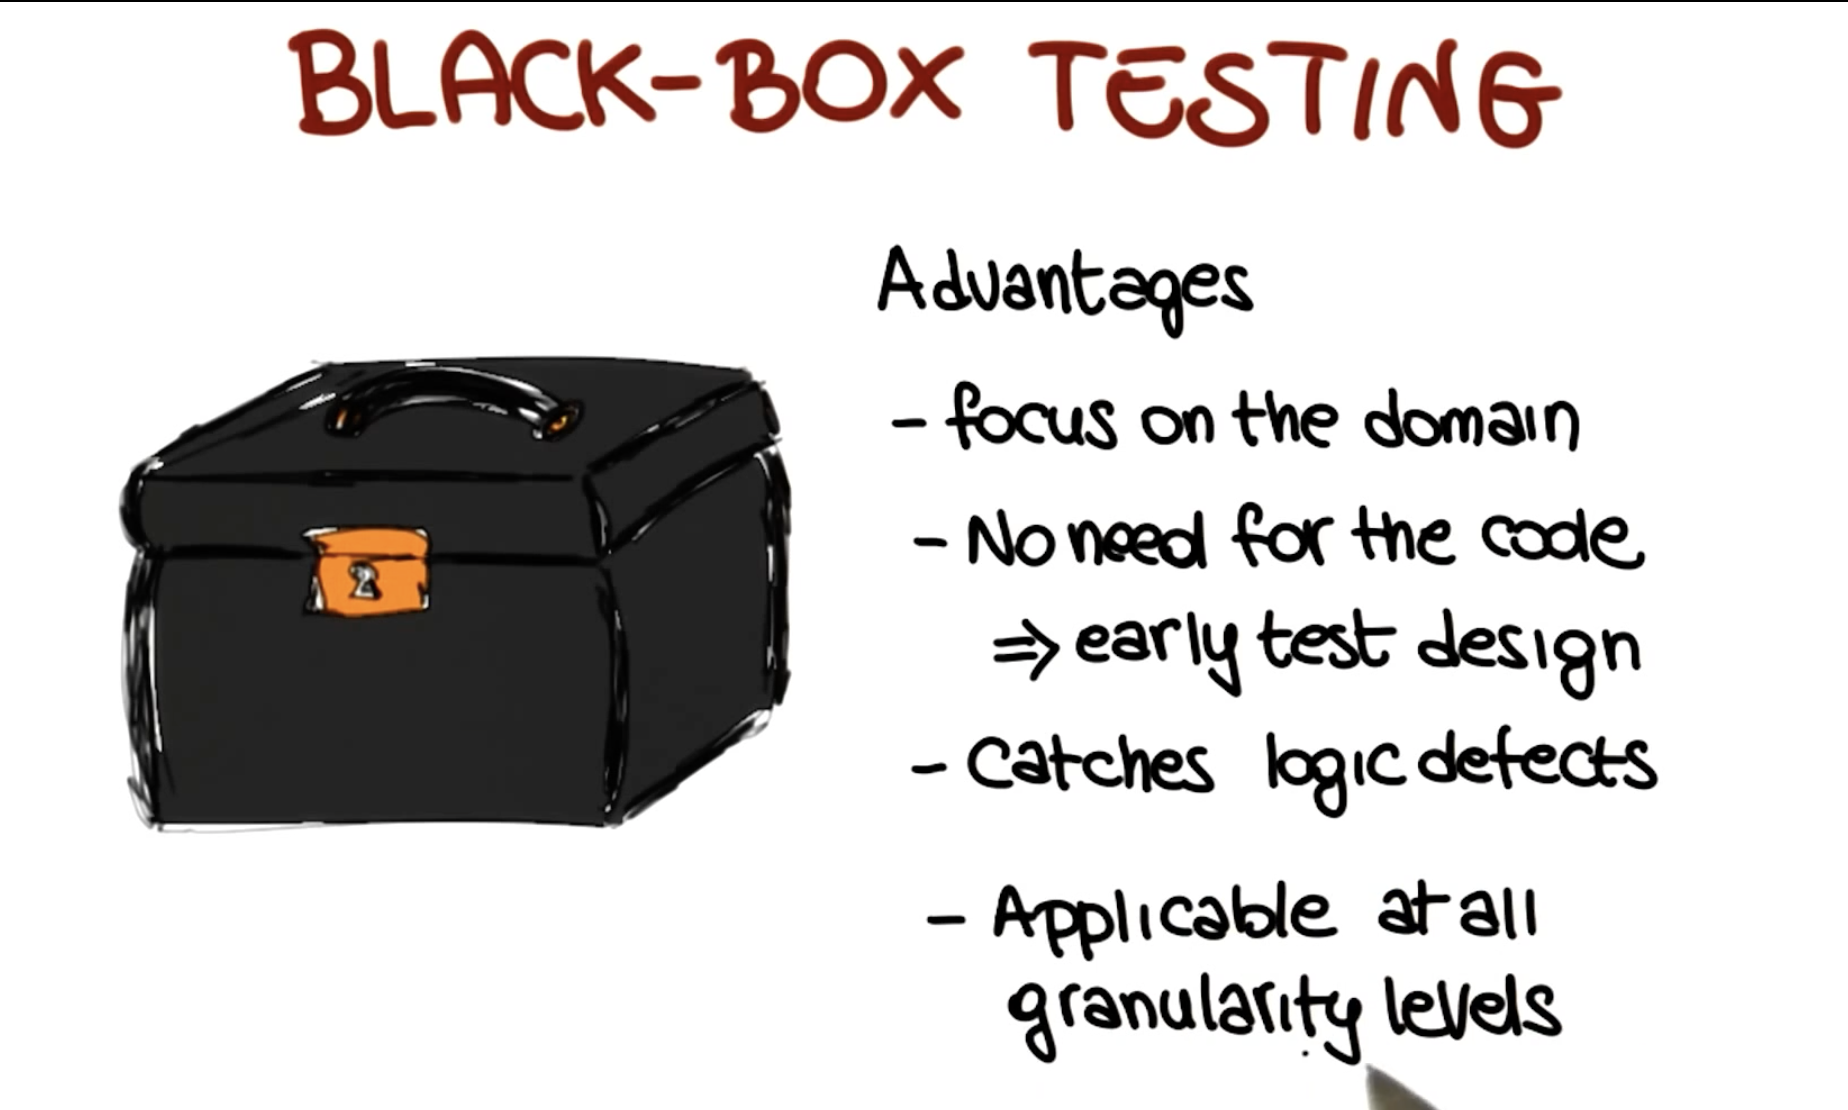 BLACK-BOX TESTING
Advantages
- focus on the domain
- No need for the code
⇒ early test design
- Catches logic defects
- Applicable at all
granularity levels